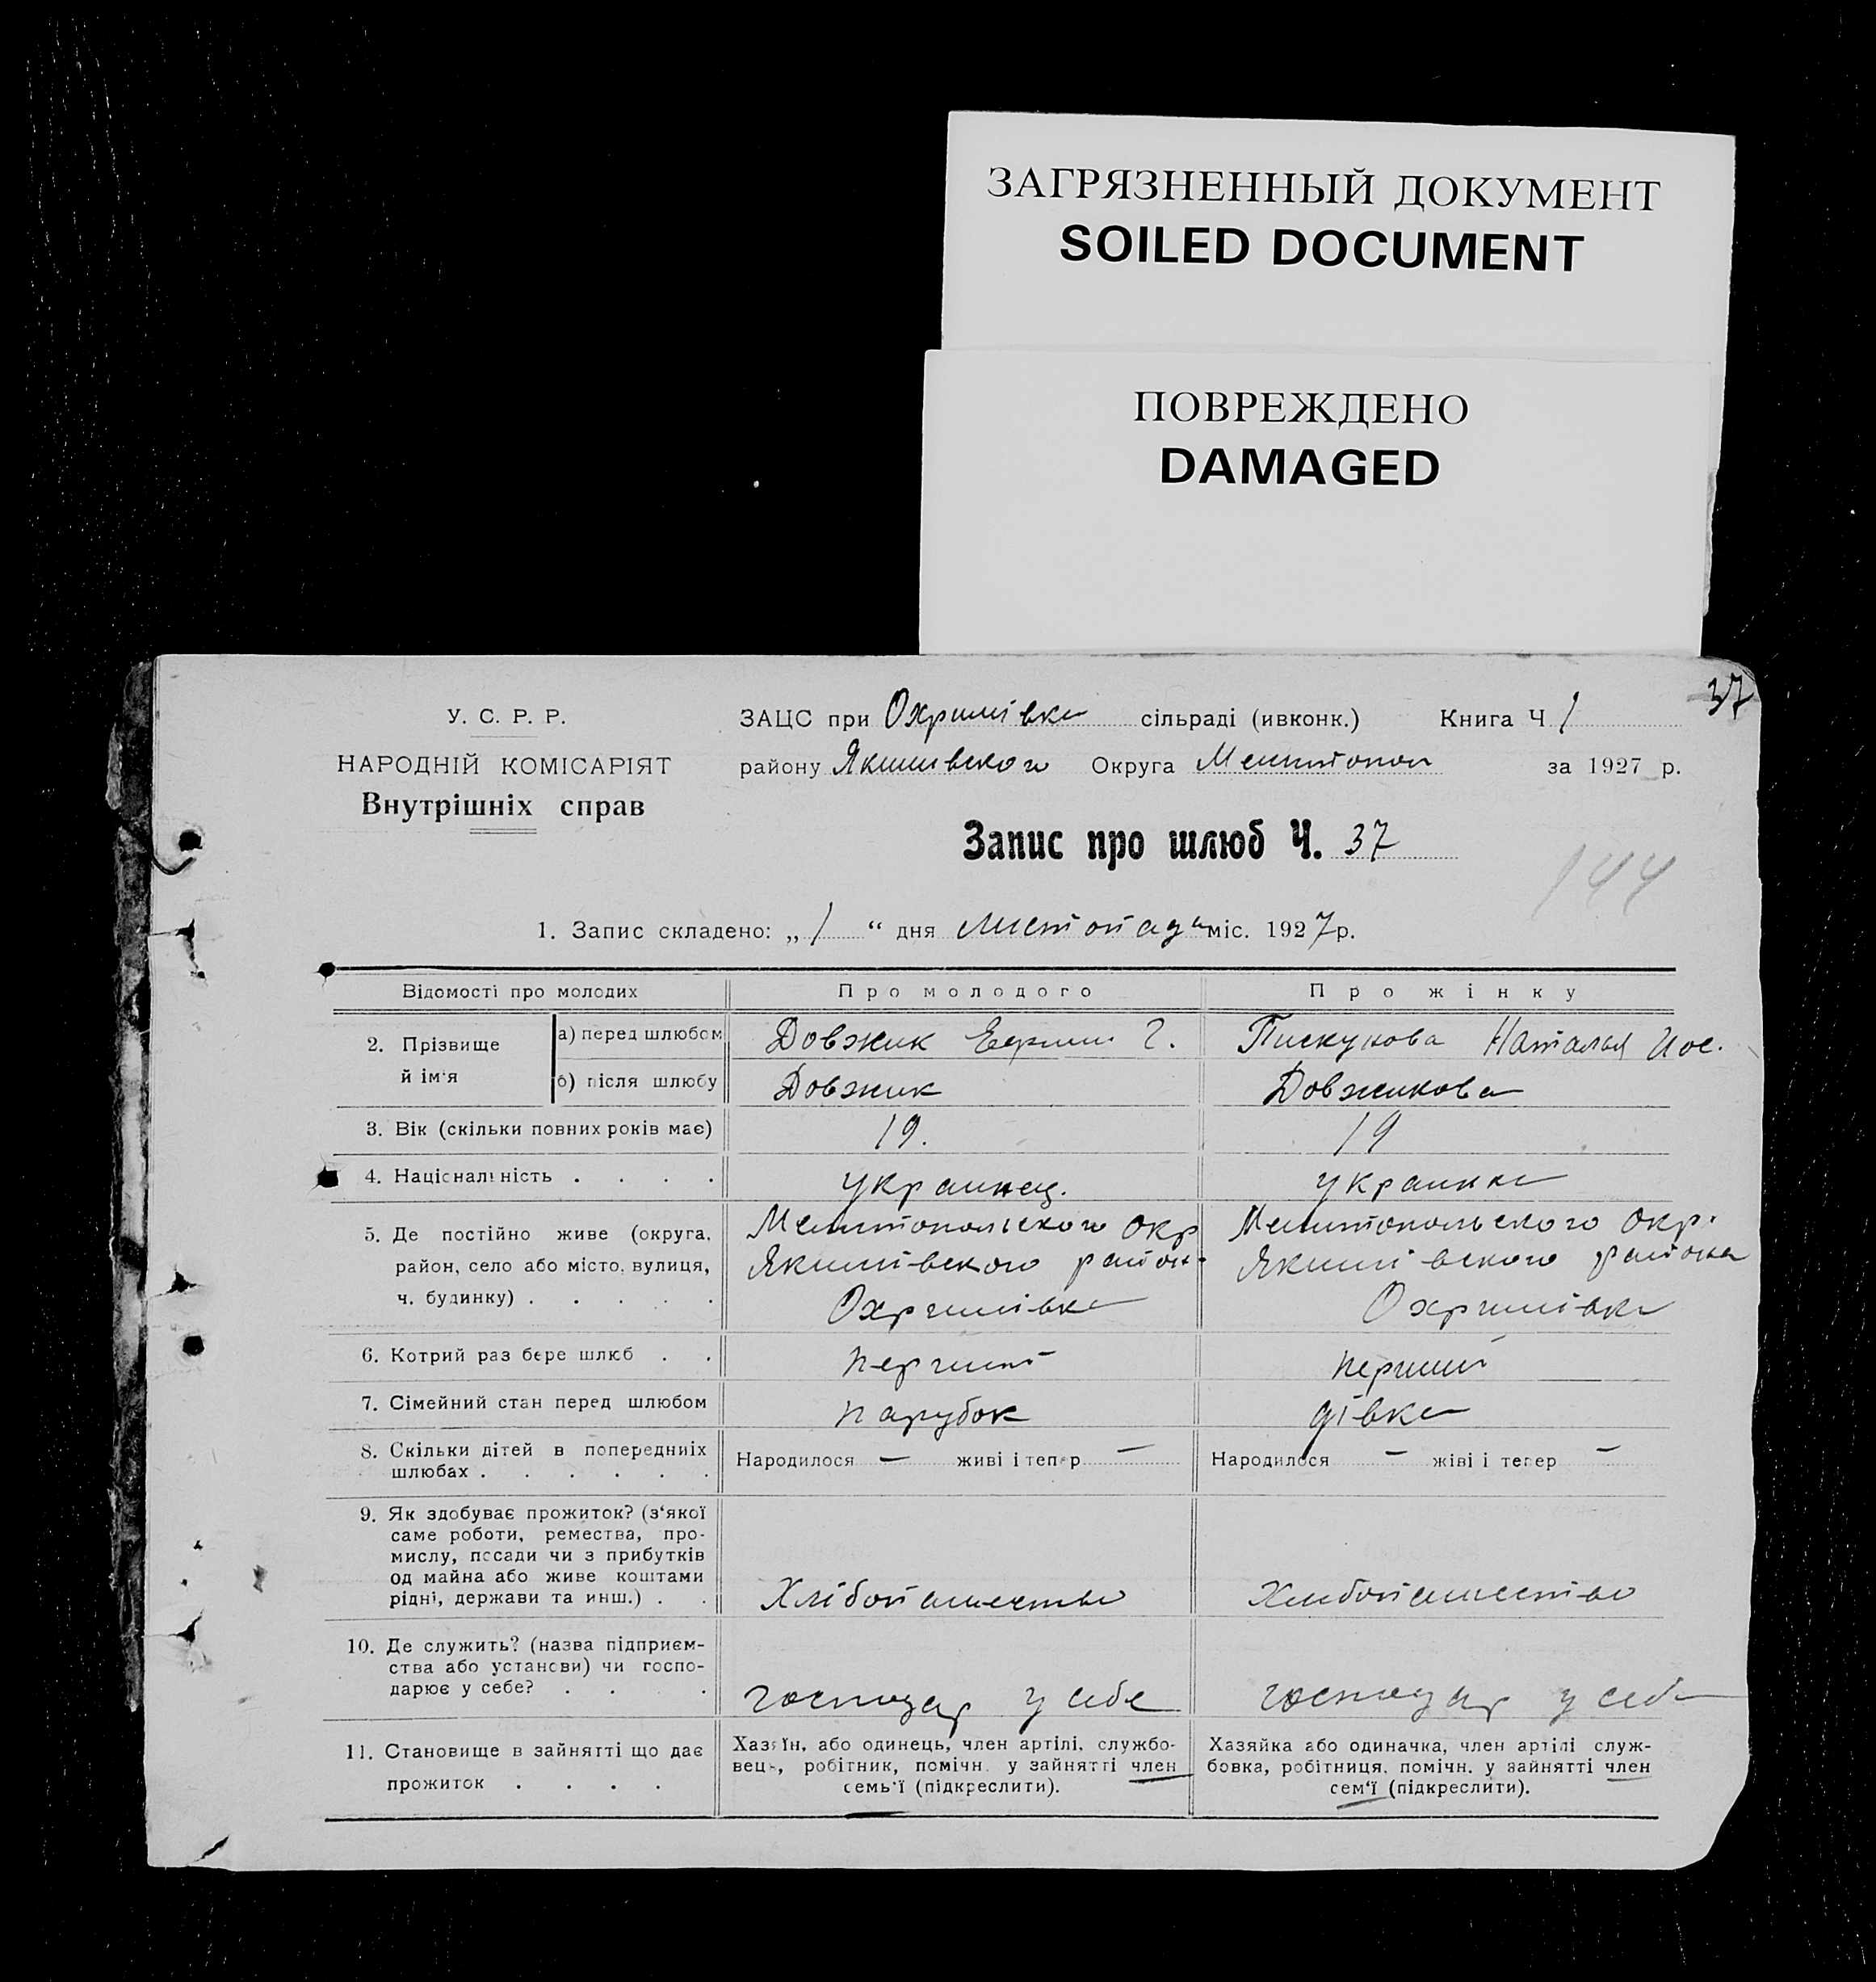 ЗАГРЯЗНЕННЫЙ ДОКУМЕНТ
SOILED DOCUMENT
ПОВРЕЖДЕНО
DAMAGED
37
У. С. Р. Р.
НАРОДНІЙ КОМІСАРІЯТ
Внутрішніх справ
ЗАЦС при Охримівка сільраді (ивконк.) Книга Ч 1
району Якимивского Округа Мелитопол за 1927 р.
Запис про шлюб Ч. 37
144
1. Запис складено: „ 1 “ дня листопада міс. 1927 р.
Відомості про молодих Про молодого Про жінку
2. Прізвище й ім‘я
а) перед шлюбом Довжик Г. Пискунова Наталья Иос.
б) після шлюбу Довжик Довжикова
3. Вік (скільки повних років має) 19. 19
4. Національність . . . . украинец. украинка
5. Де постійно живе (округа, Мелитопольского окр Мелитопольского окр.
район, село або місто, вулиця, Якимівского район Якимівского района
ч. будинку) . . . . . Охримівка Охримівка
6. Котрий раз бере шлюб . . перший перший
7. Сімейний стан перед шлюбом парубок дівка
8. Скільки дітей в попередниіх Народилося — живі і тепер — Народилося — жіві і тепер —
шлюбах . . . . . .
9. Як здобуває прожиток? (з‘якої
саме роботи, ремества, про-
мислу, посади чи з прибутків
од майна або живе коштами
рідні, держави та инш.) . . Хлібопашество Хлибопашество
10. Де служить? (назва підприєм-
ства або установи) чи госпо-
дарює у себе? . . . . господар у себе господар у себе
11. Становище в зайнятті що дає
прожиток . . . .
Хазяїн, або одинець, член артілі, службо-
вець, робітник, помічн. у зайнятті член
семь‘ї (підкреслити).
Хазяйка або одиначка, член артілі служ-
бовка, робітниця, помічн. у зайнятті член
сем‘ї (підкреслити).